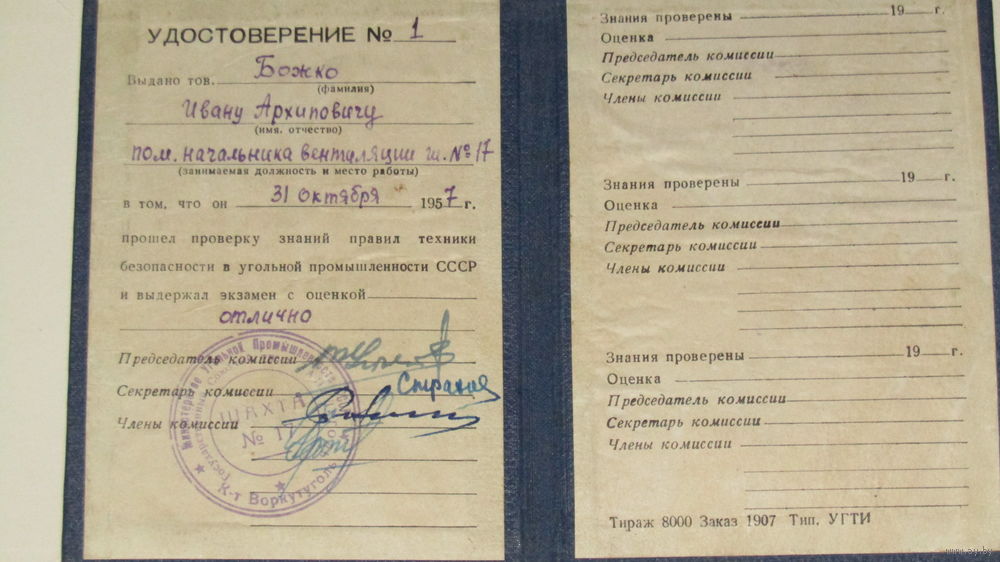 УДОСТОВЕРЕНИЕ № 1
Выдано тов. Божко
(фамилия)
Ивану Архиповичу
(имя, отчество)
пом. начальника вентиляции ш. № 17
(занимаемая должность и место работы)
в том, что он 31 октября 1957 г.
прошел проверку знаний правил техники
безопасности в угольной промышленности СССР
и выдержал экзамен с оценкой
отлично
Председатель комиссии
Секретарь комиссии
Члены комиссии
Министерство Угольной Промышленности
ШАХТА
№ 17
К-т Воркутуголь
Знания проверены 19 г.
Оценка
Председатель комиссии
Секретарь комиссии
Члены комиссии
Знания проверены 19 г.
Оценка
Председатель комиссии
Секретарь комиссии
Члены комиссии
Знания проверены 19 г.
Оценка
Председатель комиссии
Секретарь комиссии
Члены комиссии
Тираж 8000 Заказ 1907 Тип. УГТИ